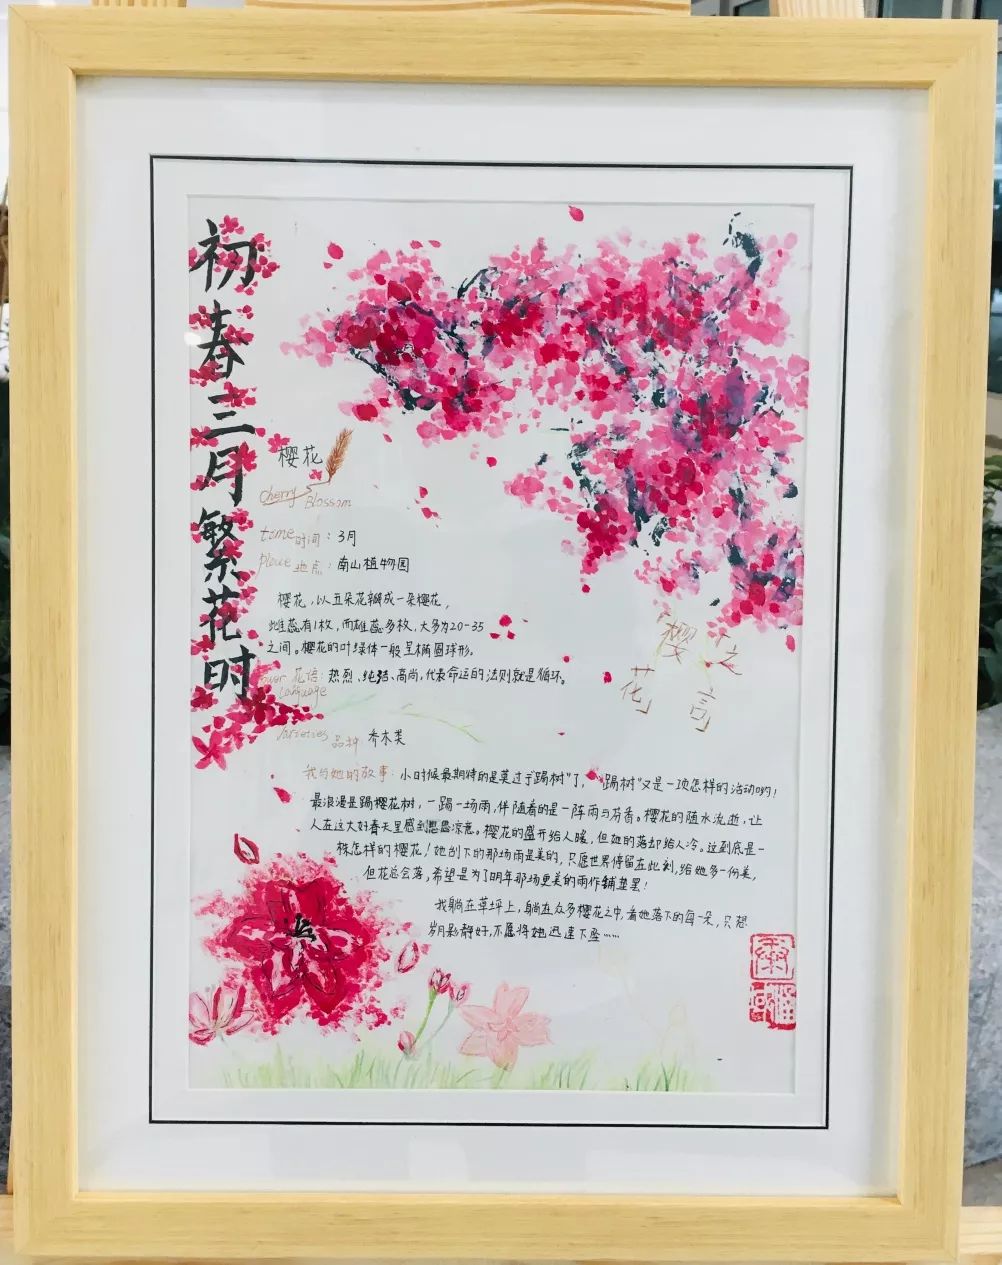 初春三月繁花时
樱花
Cherry Blossom
time 时间：3月
place 地点：南山植物园
樱花，以五朵花瓣成一朵樱花，
雌蕊有1枚，而雄蕊多枚，大多为20-35
之间。樱花的叶绿体一般呈椭圆球形。
花语：热烈、纯洁、高尚，代表命运的法则就是循环。
Language
Varieties 品种 乔木类
「樱花」
之言
我与她的故事：小时候最期待的是莫过于"踢树"了，"踢树"又是一项怎样的活动哟！
最浪漫是踢樱花树，一踢一场雨，伴随着的是一阵雨与芬香。樱花的随水流逝，让
人在这大好春天里感到思愚凉意。樱花的盛开给人暖，但她的落却给人冷。这到底是一
株怎样的樱花！她刮下的那场雨是美的，只愿世界停留在此刻，给她多一份美，
但花总会落，希望是为了明年那场更美的雨作铺垫罢！
我躺在草坪上，躺在众多樱花之中，看她落下的每一朵，只想
岁月影静好，不愿将她迅速下坠……